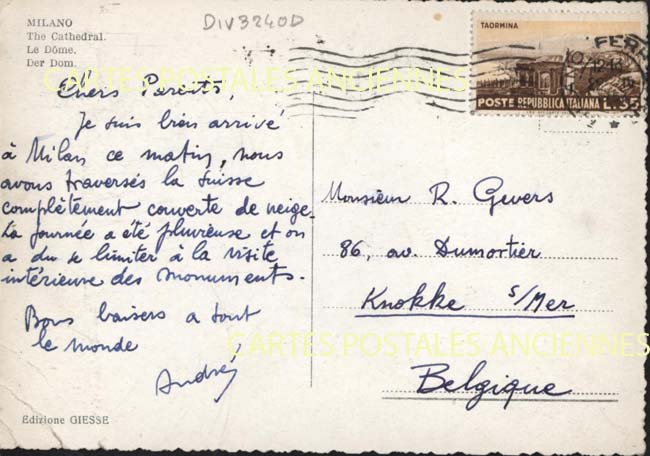 MILANO
The Cathedral.
Le Dôme.
Der Dom.
DIV3240D
TAORMINA
POSTE REPUBBLICA ITALIANA L.35
FERR
CARTES POSTALES ANCIENNES
Chers Parents,
Je suis bien arrivé
à Milan ce matin, nous
avons traversés la Suisse
complètement couverte de neige.
La journée a été pluvieuse et on
a du se limiter à la visite
intérieure des monuments.
Bons baisers a tout
le monde
André
Monsieur R. Gevers
86, av. Dumortier
Knokke s/Mer
Belgique
CARTES POSTALES ANCIENNES
Edizione GIESSE